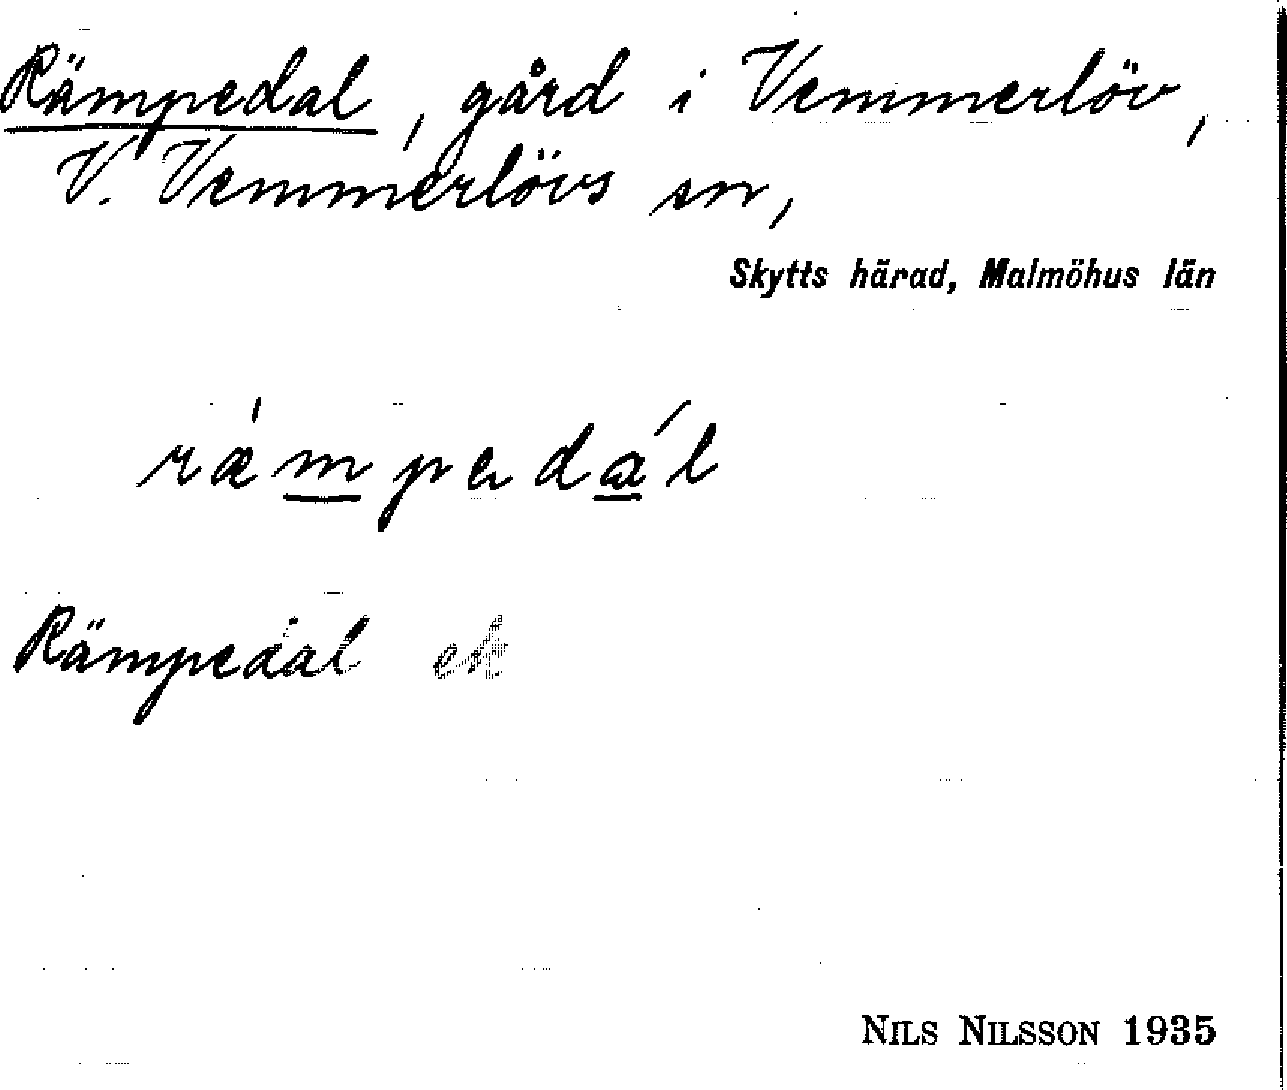 Rämpedal, gård i Vemmerlöv,
V. Vemmerlövs sn,
Skytts härad, Malmöhus län
ræ̀m̲pɘda̲ ́l
Rämpedal ek
NILS NILSSON 1935